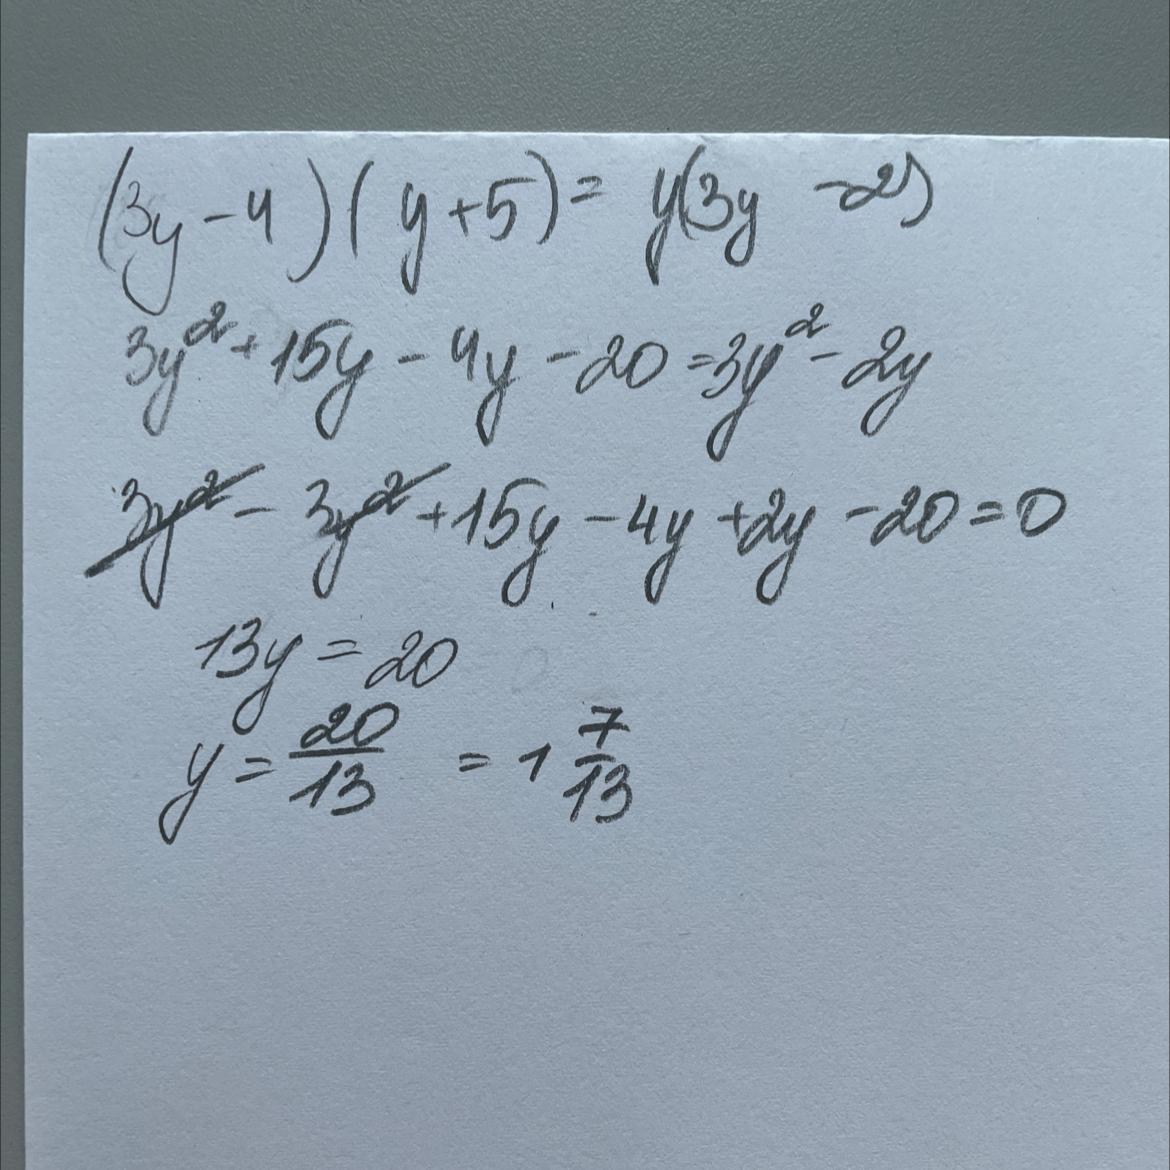 (3y-4)(y+5)=y(3y-2)
3y²+15y-4y-20=3y²-2y
3y²-3y²+15y-4y+2y-20=0
13y=20
y=20/13=1 7/13